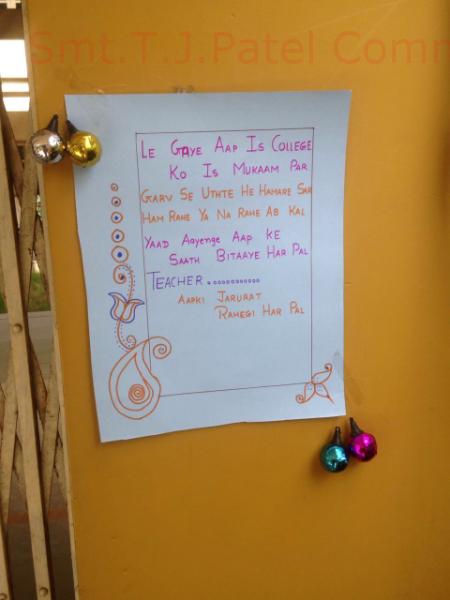 Smt.T.J.Patel Comm
LE GAYE AAP IS COLLEGE
KO IS MUKAAM PAR
GARV SE UTHTE HE HAMARE SAR
HAM RAHE YA NA RAHE AB KAL
YAAD AAYENGE AAP KE
SAATH BITAAYE HAR PAL
TEACHER............
AAPKI JARURAT
RAHEGI HAR PAL